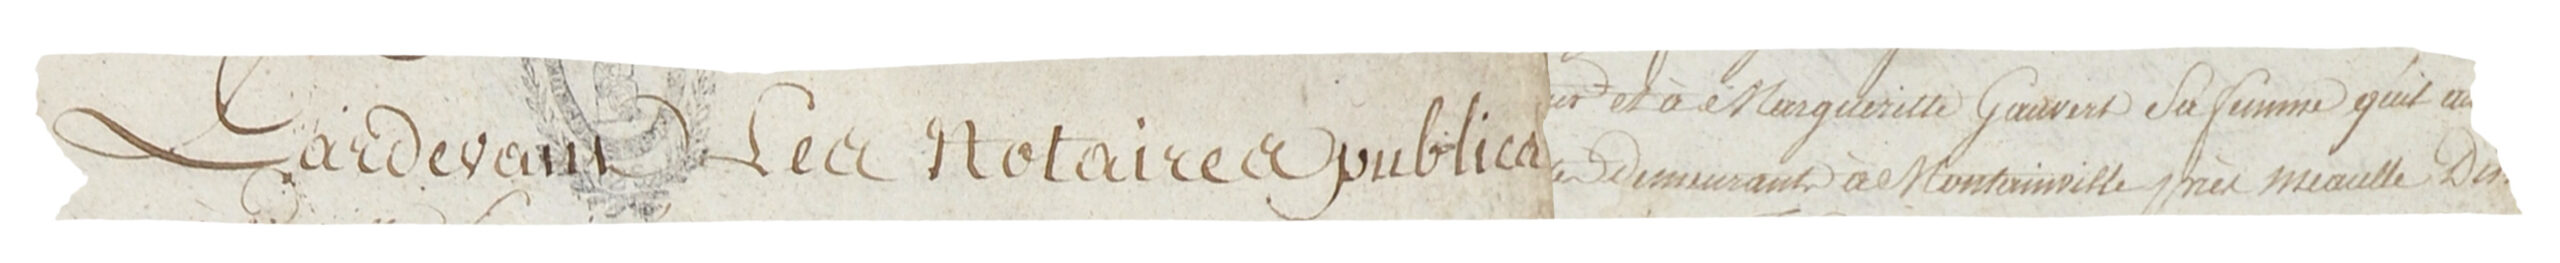 Pardevant Les Notaires publics
et à Margueritte Gauvert Sa femme qu'il au
demeurant à Montainville près meaulle